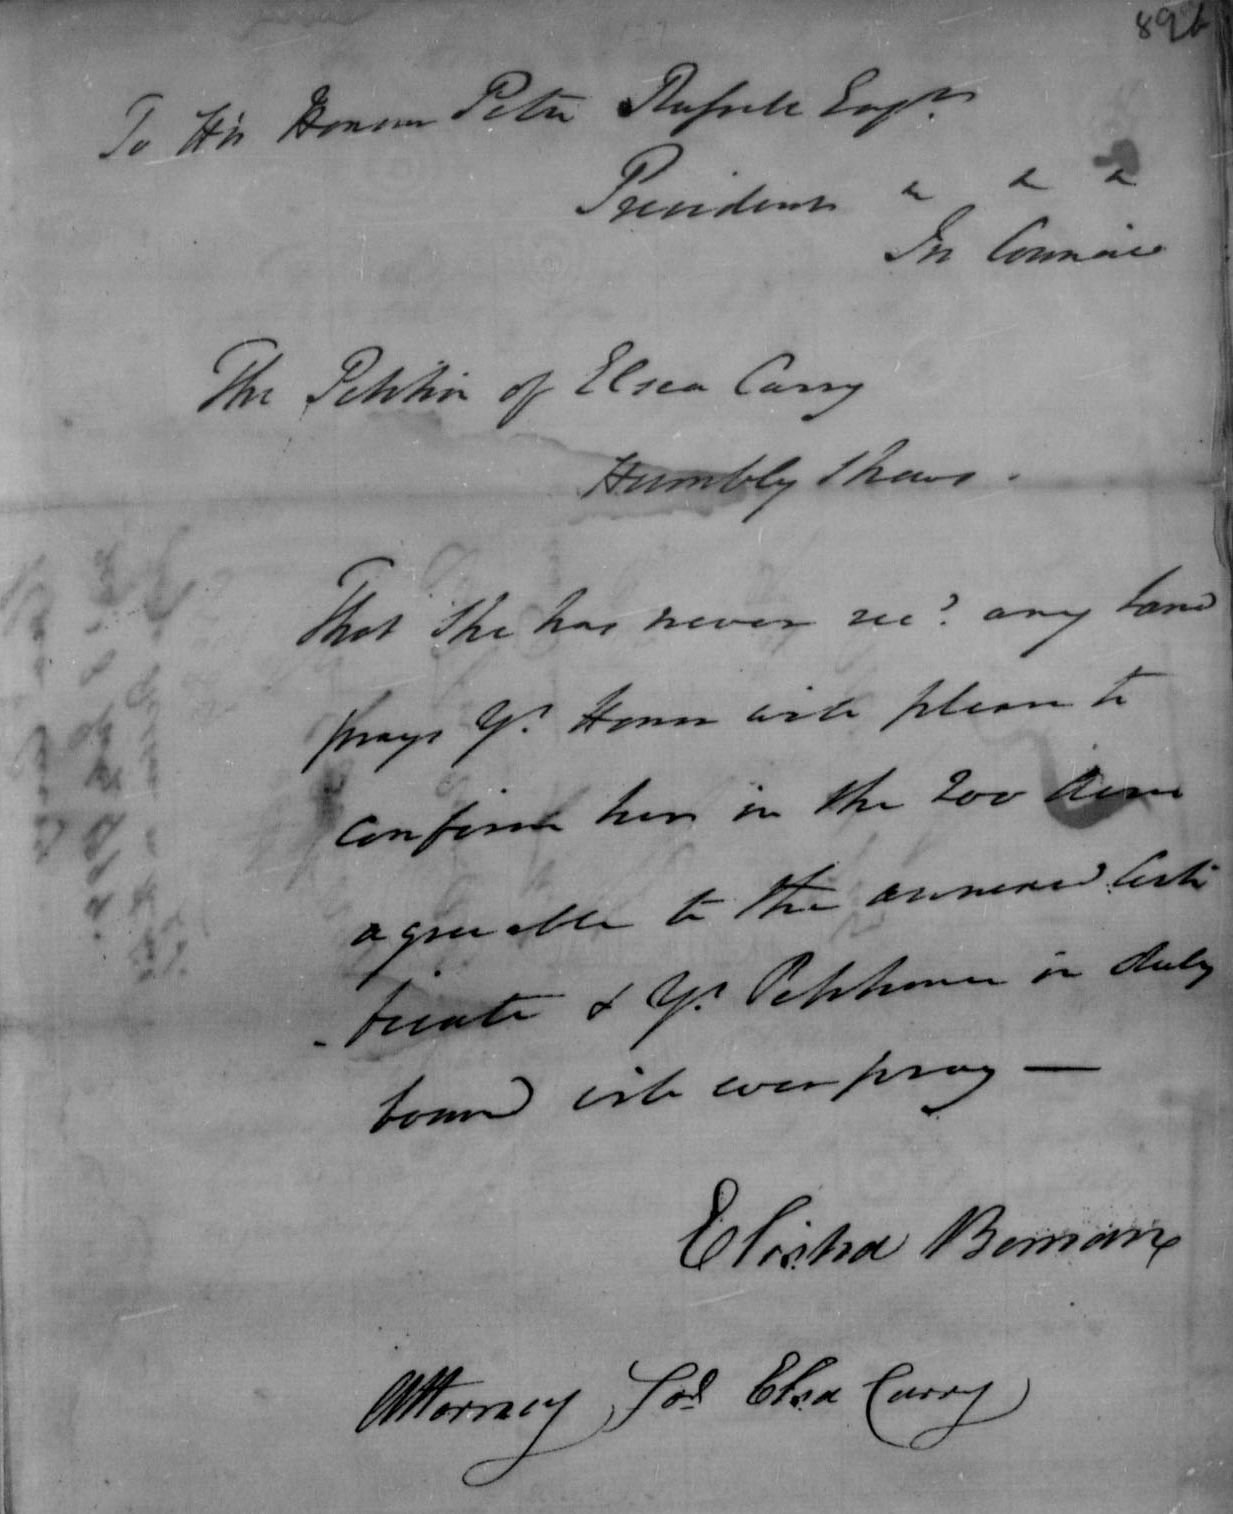 89b
To His Honour Peter Russell Esqr.
President &c &c &c
In Council
The Petition of Elsea Carry
Humbly Shews.
That She has never recd. any Land
prays Yr. Honor will please to
confirm her in the 200 Acres
agreeable to the annexed Certi
-ficate & Yr. Petitioner in duly
bound will ever pray —
Elisha Beman
Attorney for Elsa Curry